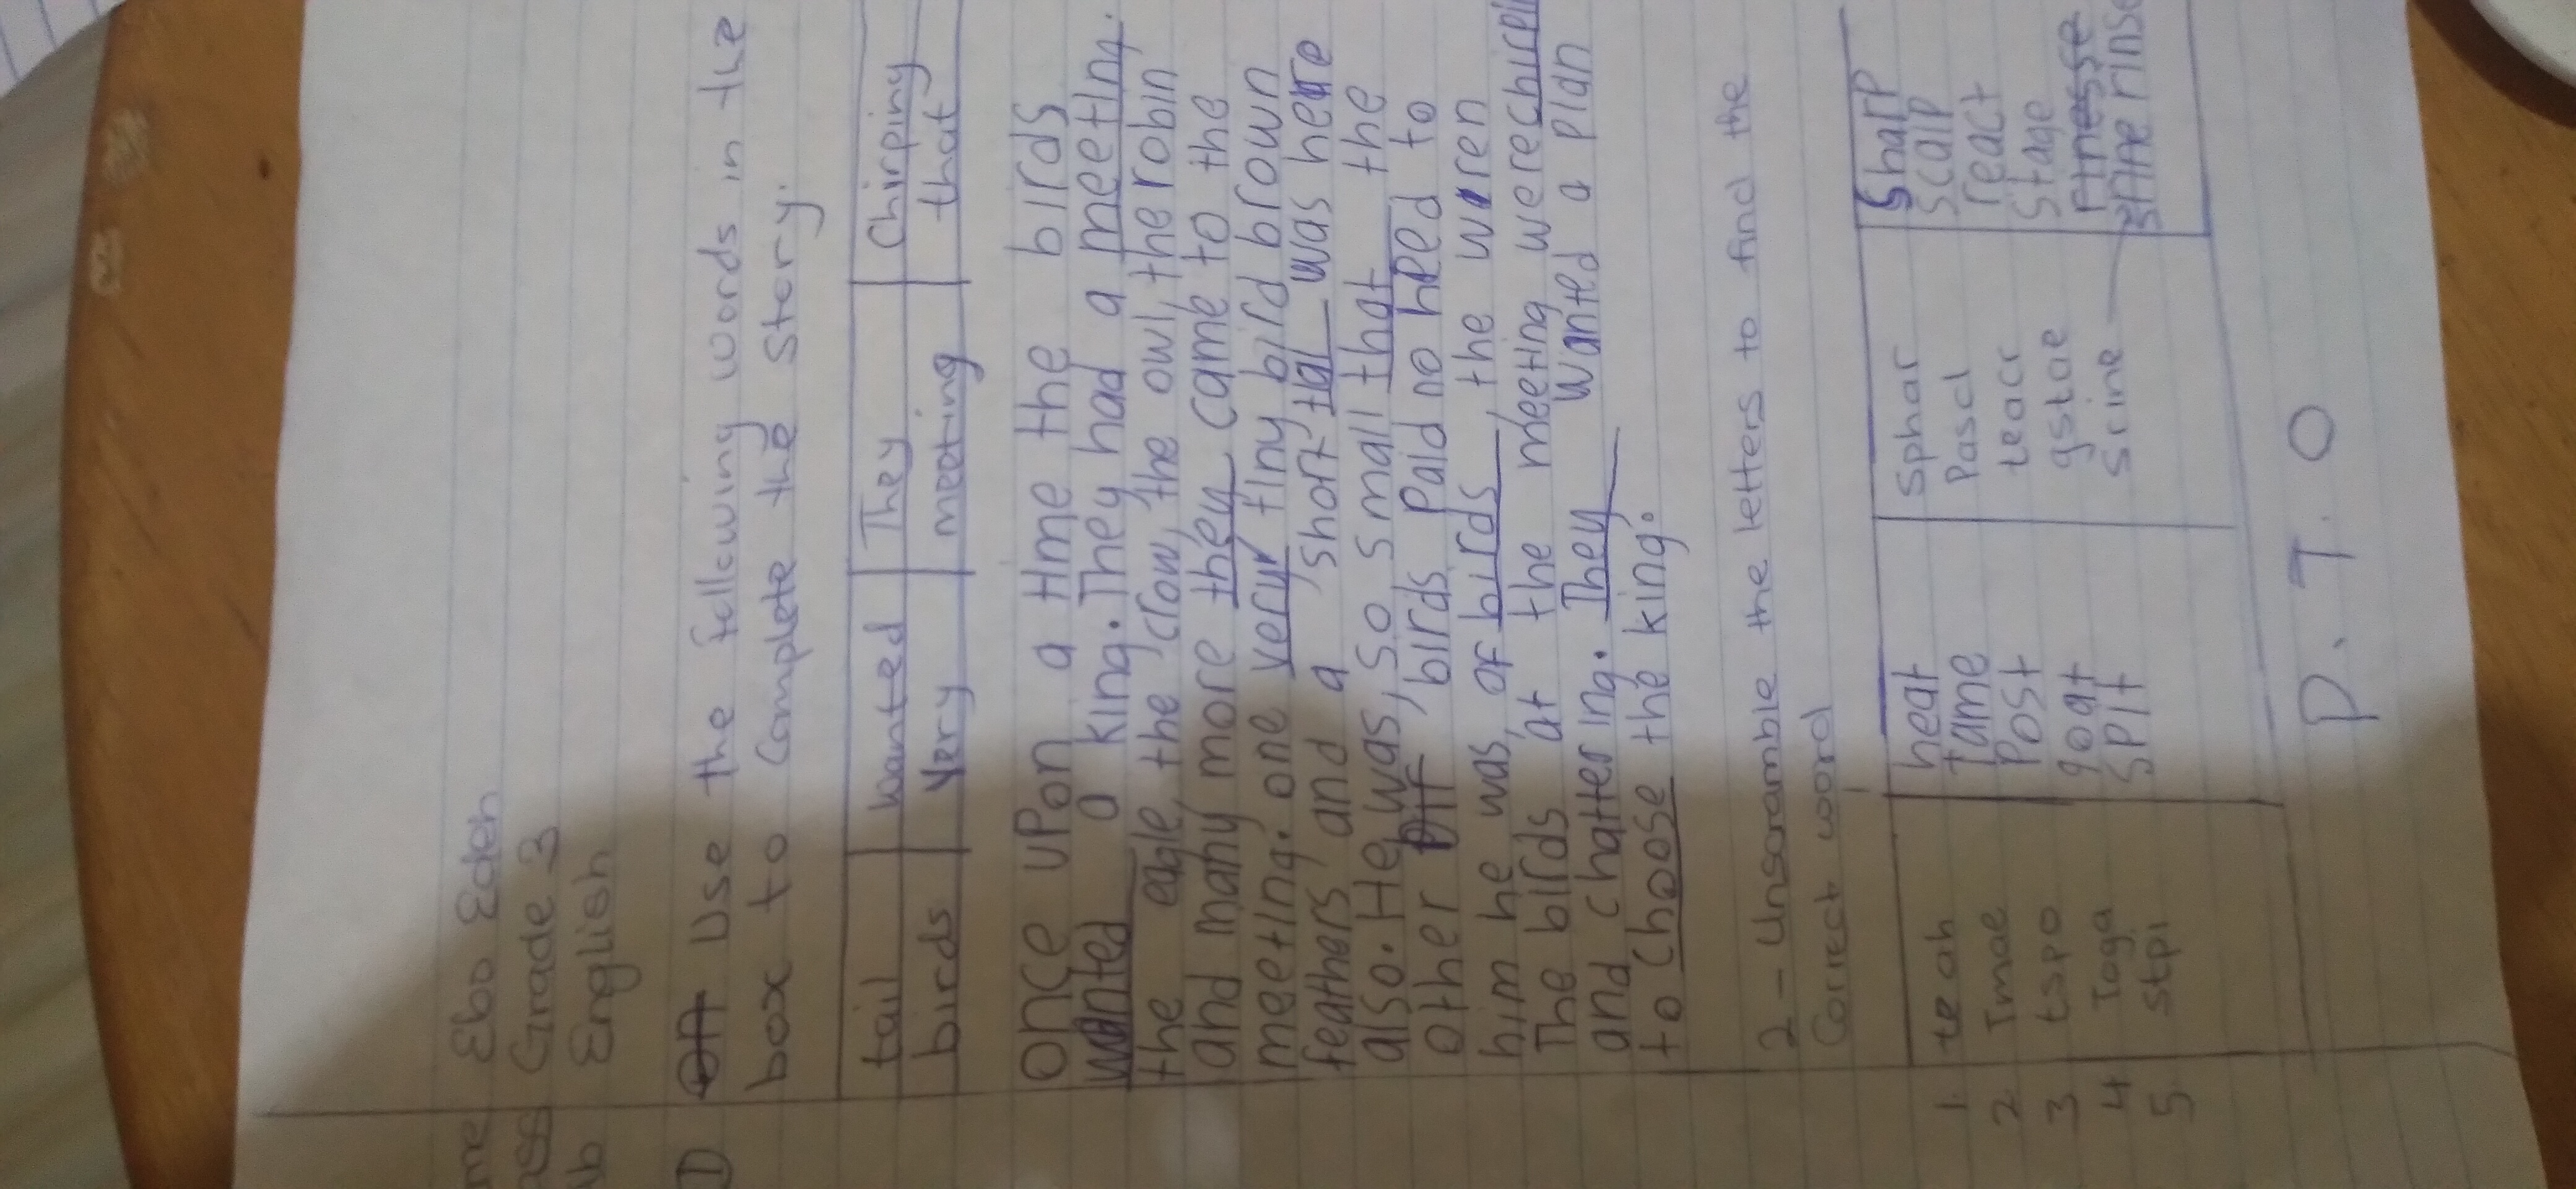 me Ebo Edeh
ass Grade 3
ub English
1) Use the following words in the
box to complete the story.
tail wanted They Chirping
birds very meeting that
Once upon a time the birds
wanted a king. They had a meeting.
the eagle, the crow, the owl, the robin
and many more they came to the
meeting. one very tiny bird brown
feathers and a short tal was here
also. He was, so small that the
other birds paid no heed to
him he was of birds, the wren
The birds at the meeting were chirpi
and chattering. They wanted a plan
to choose the king.
2 - Unscramble the letters to find the
Correct word
1. teah heat Sphar Sharp
2 Tmae Tame Pascl Scalp
3 tspo Post teacr react
4 Toga goat gstae Stage
5 stpi Spit Srine rinse
P. T. O